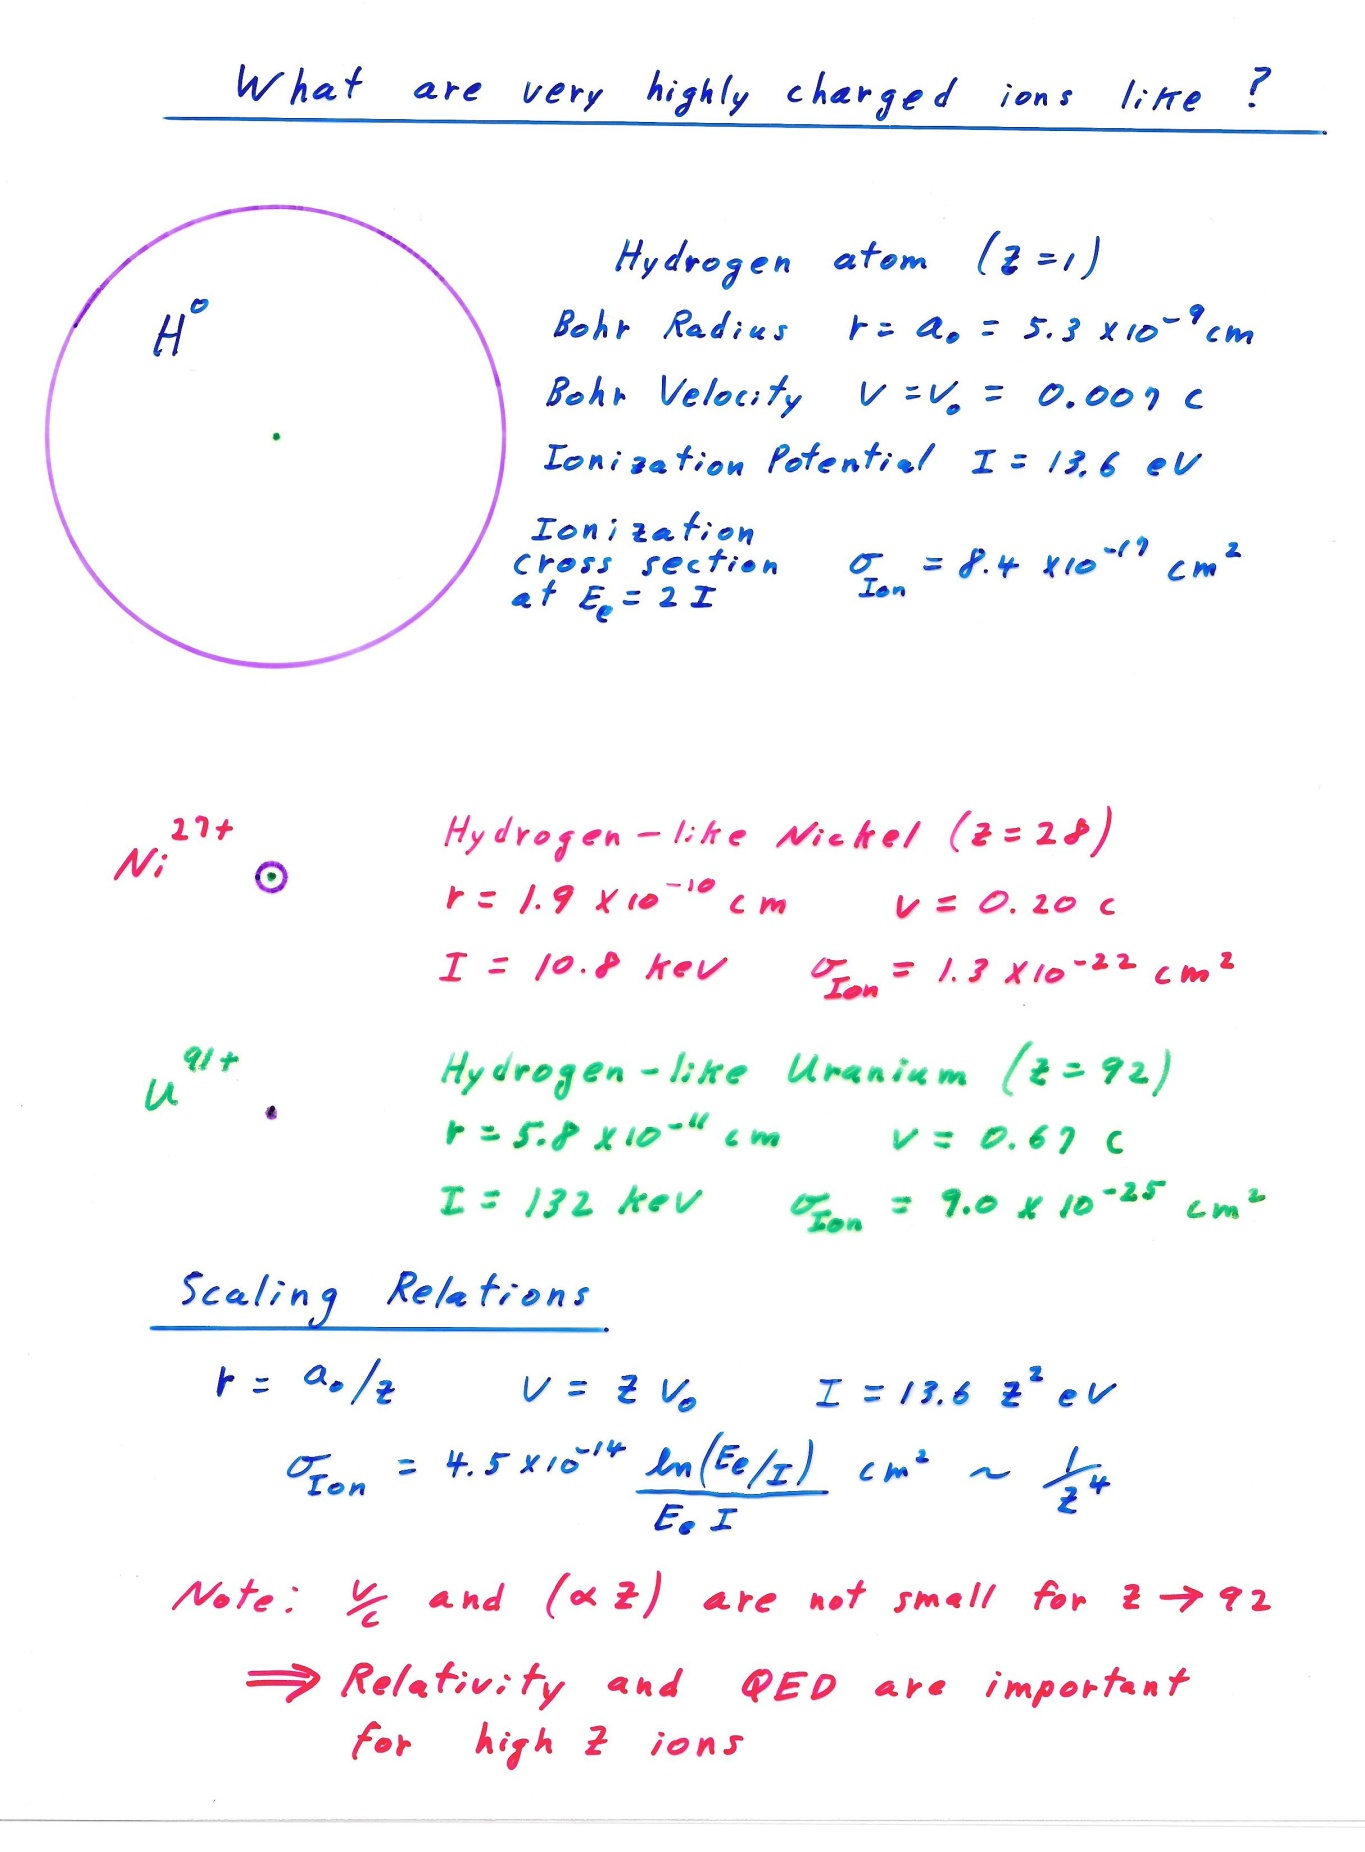 What are very highly charged ions like ?
H⁰
Hydrogen atom (Z=1)
Bohr Radius r = a₀ = 5.3 x 10⁻⁹ cm
Bohr Velocity V = V₀ = 0.007 c
Ionization Potential I = 13.6 eV
Ionization
cross section σ_Ion = 8.4 x 10⁻¹⁷ cm²
at E_e = 2 I
Ni²⁷⁺
Hydrogen-like Nickel (Z=28)
r = 1.9 x 10⁻¹⁰ cm v = 0.20 c
I = 10.8 keV σ_Ion = 1.3 x 10⁻²² cm²
U⁹¹⁺
Hydrogen-like Uranium (Z=92)
r = 5.8 x 10⁻¹¹ cm v = 0.67 c
I = 132 keV σ_Ion = 9.0 x 10⁻²⁵ cm²
Scaling Relations
r = a₀/Z V = Z V₀ I = 13.6 Z² eV
σ_Ion = 4.5 x 10⁻¹⁴ ln(E_e/I) / E_e I cm² ~ 1/Z⁴
Note: v/c and (αZ) are not small for Z → 92
⇒ Relativity and QED are important
for high Z ions